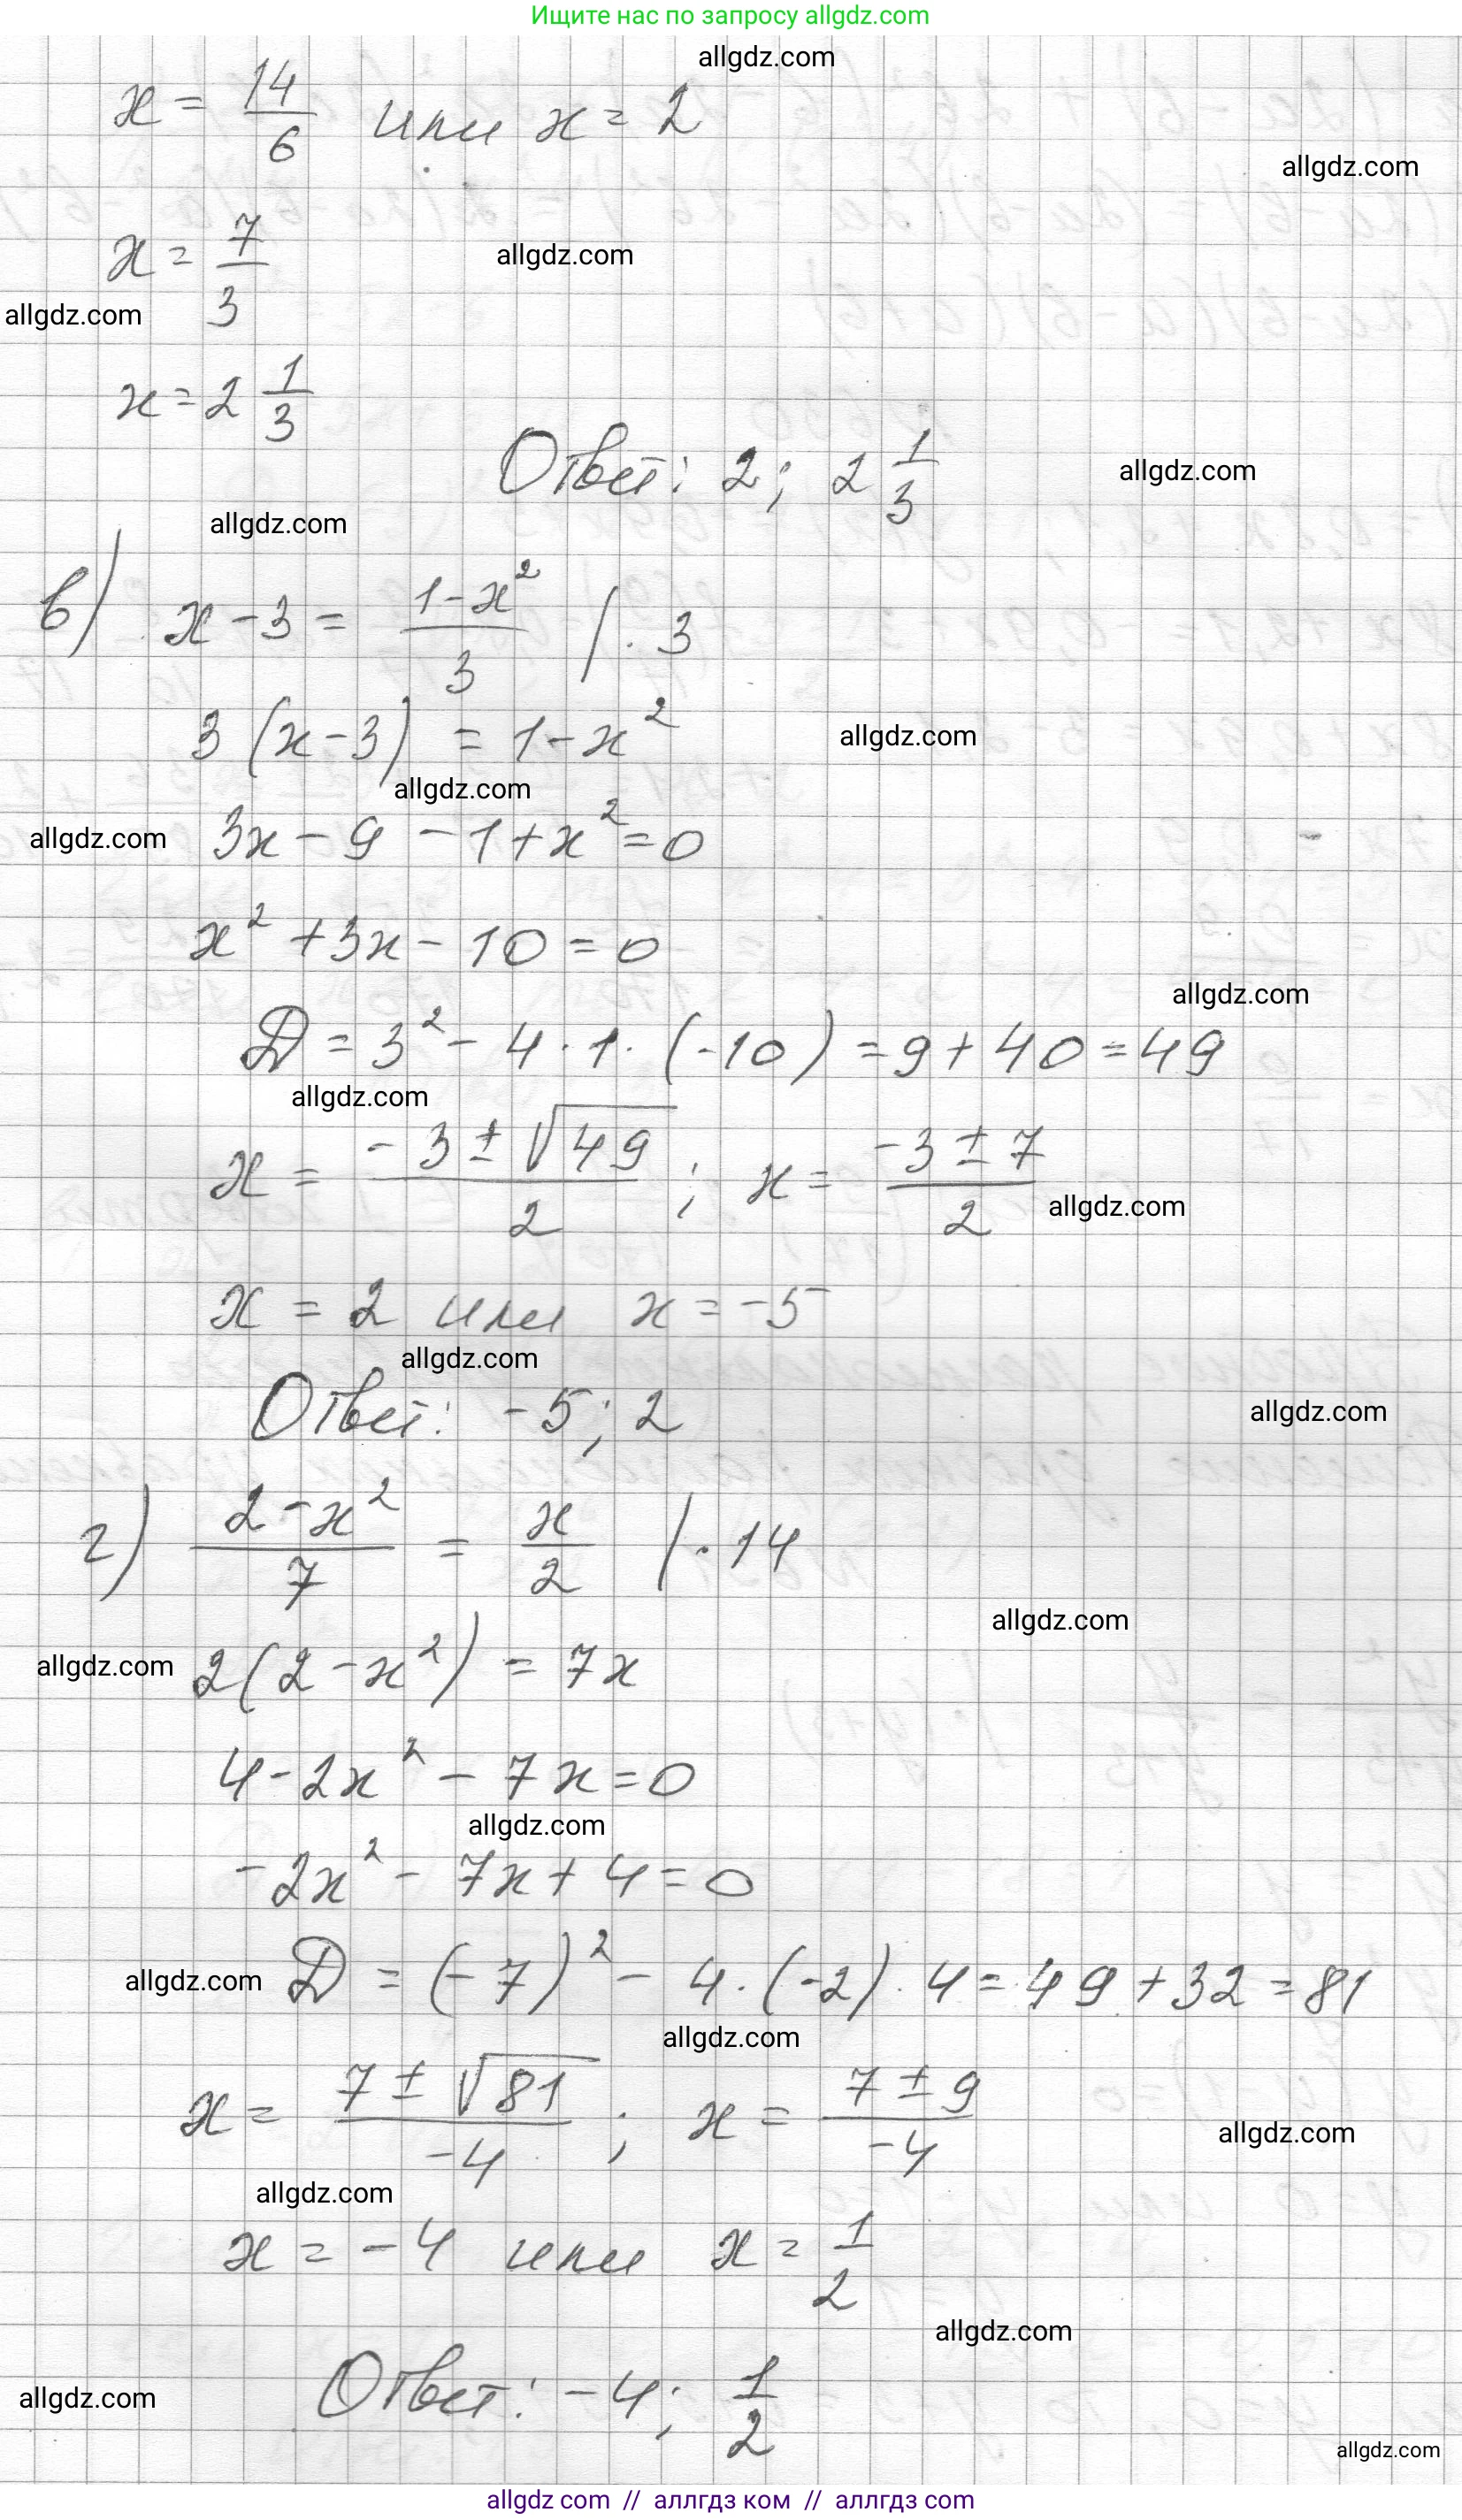 Ищите нас по запросу allgdz.com
allgdz.com
x = 14/6 или x = 2
allgdz.com
x = 7/3
allgdz.com
allgdz.com
x = 2 1/3
Ответ: 2; 2 1/3
allgdz.com
allgdz.com
в) x - 3 = (1 - x²)/3 / · 3
3(x - 3) = 1 - x²
allgdz.com
allgdz.com
allgdz.com
3x - 9 - 1 + x² = 0
x² + 3x - 10 = 0
allgdz.com
D = 3² - 4 · 1 · (-10) = 9 + 40 = 49
allgdz.com
x = (-3 ± √49)/2 ; x = (-3 ± 7)/2
allgdz.com
x = 2 или x = -5
allgdz.com
Ответ: -5; 2
allgdz.com
г) (2 - x²)/7 = x/2 / · 14
allgdz.com
allgdz.com
2(2 - x²) = 7x
4 - 2x² - 7x = 0
allgdz.com
-2x² - 7x + 4 = 0
allgdz.com
D = (-7)² - 4 · (-2) · 4 = 49 + 32 = 81
allgdz.com
x = (7 ± √81)/-4 ; x = (7 ± 9)/-4
allgdz.com
allgdz.com
x = -4 или x = 1/2
allgdz.com
allgdz.com
Ответ: -4; 1/2
allgdz.com
allgdz com // аллгдз ком // аллгдз com